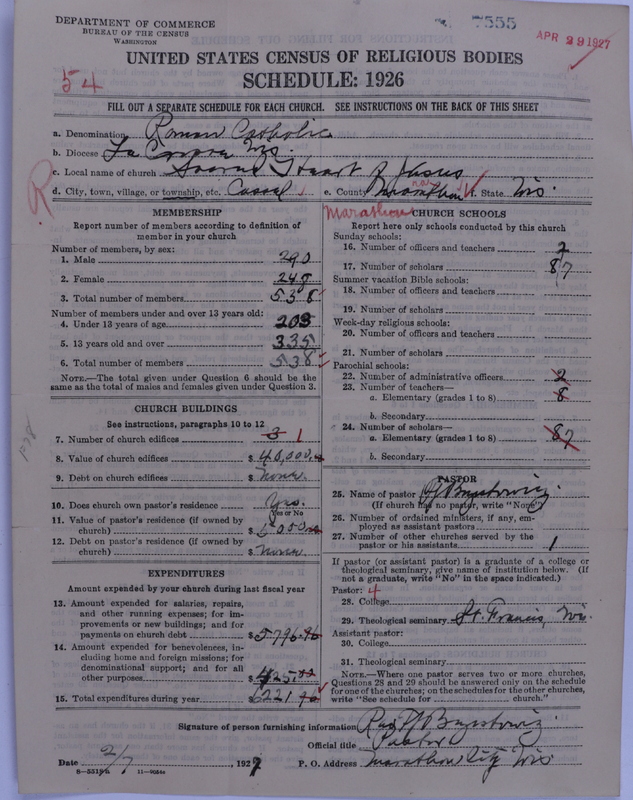 DEPARTMENT OF COMMERCE
BUREAU OF THE CENSUS
WASHINGTON
7555
APR 29 1927
54
UNITED STATES CENSUS OF RELIGIOUS BODIES
SCHEDULE: 1926
FILL OUT A SEPARATE SCHEDULE FOR EACH CHURCH. SEE INSTRUCTIONS ON THE BACK OF THIS SHEET
a. Denomination Roman Catholic
b. Diocese La Crosse Wis.
c. Local name of church Heart of Jesus
d. City, town, village, or township, etc. Cassel e. County Marathon f. State Wis.
Marathon
MEMBERSHIP
Report number of members according to definition of
member in your church
Number of members, by sex:
1. Male 290
2. Female 248
3. Total number of members 538
Number of members under and over 13 years old:
4. Under 13 years of age 203
5. 13 years old and over 335
6. Total number of members 538
NOTE.—The total given under Question 6 should be
same as the total of males and females given under Question 3.
CHURCH BUILDINGS
See instructions, paragraphs 10 to 12
7. Number of church edifices 3 1
8. Value of church edifices $ 40,000.
9. Debt on church edifices $ None.
10. Does church own pastor's residence Yes.
Yes or No
11. Value of pastor's residence (if owned by
church) $
12. Debt on pastor's residence (if owned by
church) $ None
EXPENDITURES
Amount expended by your church during last fiscal year
13. Amount expended for salaries, repairs,
and other running expenses; for im-
provements or new buildings; and for
payments on church debt $ 5796
14. Amount expended for benevolences, in-
cluding home and foreign missions; for
denominational support; and for all
other purposes $ 425
15. Total expenditures during year $ 6221
CHURCH SCHOOLS
Report here only schools conducted by this church
Sunday schools:
16. Number of officers and teachers 2
17. Number of scholars 87
Summer vacation Bible schools:
18. Number of officers and teachers
19. Number of scholars
Week-day religious schools:
20. Number of officers and teachers
21. Number of scholars
Parochial schools:
22. Number of administrative officers 2
23. Number of teachers—
a. Elementary (grades 1 to 8) 8
b. Secondary
24. Number of scholars—
a. Elementary (grades 1 to 8) 87
b. Secondary
PASTOR
25. Name of pastor
(If church has no pastor, write "None")
26. Number of ordained ministers, if any, em-
ployed as assistant pastors
27. Number of other churches served by the
pastor or his assistants 1
If pastor (or assistant pastor) is a graduate of a college or
theological seminary, give name of institution below. (If
not a graduate, write "No" in the space indicated.)
Pastor: 4
28. College
29. Theological seminary St. Francis, Wis.
Assistant pastor:
30. College
31. Theological seminary
NOTE.—Where one pastor serves two or more churches,
Questions 28 and 29 should be answered only on the schedule
for one of the churches; on the schedules for the other churches,
write "See schedule for church."
Signature of person furnishing information
Official title Pastor
Date 2/7, 1927 P. O. Address Marathon City Wis
8—5518a 11—9034a